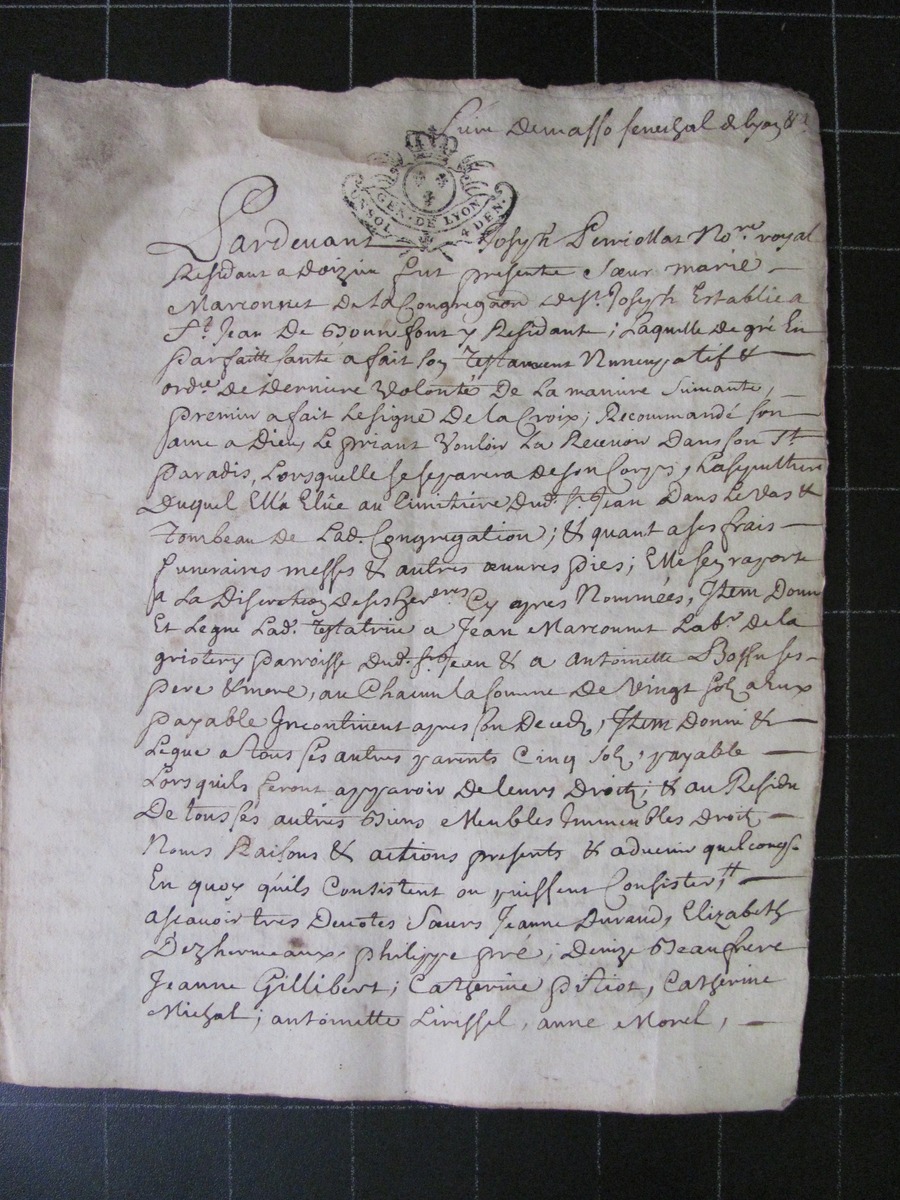 demasso senechal de lyon &a
GEN. DE LYON
UN SOL 4 DEN.
Pardevant Joseph Perriollat No.re royal
Residant a Doizieu fut presente Sœur marie
Marconnet De la Congrega̅on de St. Joseph Establie a
St. Jean De Bonnefont y Residant; Laquelle de gré En
parfaitte santé a fait son Testament Nuncupatif &
ord.ce de Derniere Volonté De La maniere Suivante,
premier a fait Le signe De la Croix; Recommandé son
ame a Dieu Le priant Vouloir La Recevoir Dans son St.
paradis, Lorsquelle se separera de son Corps, La sepulture
Duquel Ell'a Elüe au Cimitière Dud. St. Jean Dans Le Vas &
Tombeau De Lad. Congregation; & quant a ses frais
funeraires messes & autres œuvres pies; Elle s'en raporte
a La Discretion De ses her.eres Cy apres Nommées, Item Donne
Et Legue Lad. Testatrice a Jean Marconnet Lab.r de la
parroisse Dud. St. Jean & a Antoinette ses
pere & mere, au Chacun la somme De vingt solz a Eux
payable Incontinent apres son Decedz, Item Donne &
Legue a tous ses autres parents Cinq solz, payable
Lorsquils feront apparoir De leurs Droitz; & au Residu
De tous ses autres Biens Meubles Immeubles Droitz
Noms Raisons & actions presents & advenir quelconq.
En quoy qu'ils Consistent ou puissent Consister,
ascavoir tres Devotes Sœurs Jeanne Durand, Elizabeth
Dezhermeaux, philippe pré; Denize Beaufrere
Jeanne Gillibert; Catherine pitiot, Catherine
Michal; antoinette, anne Morel,